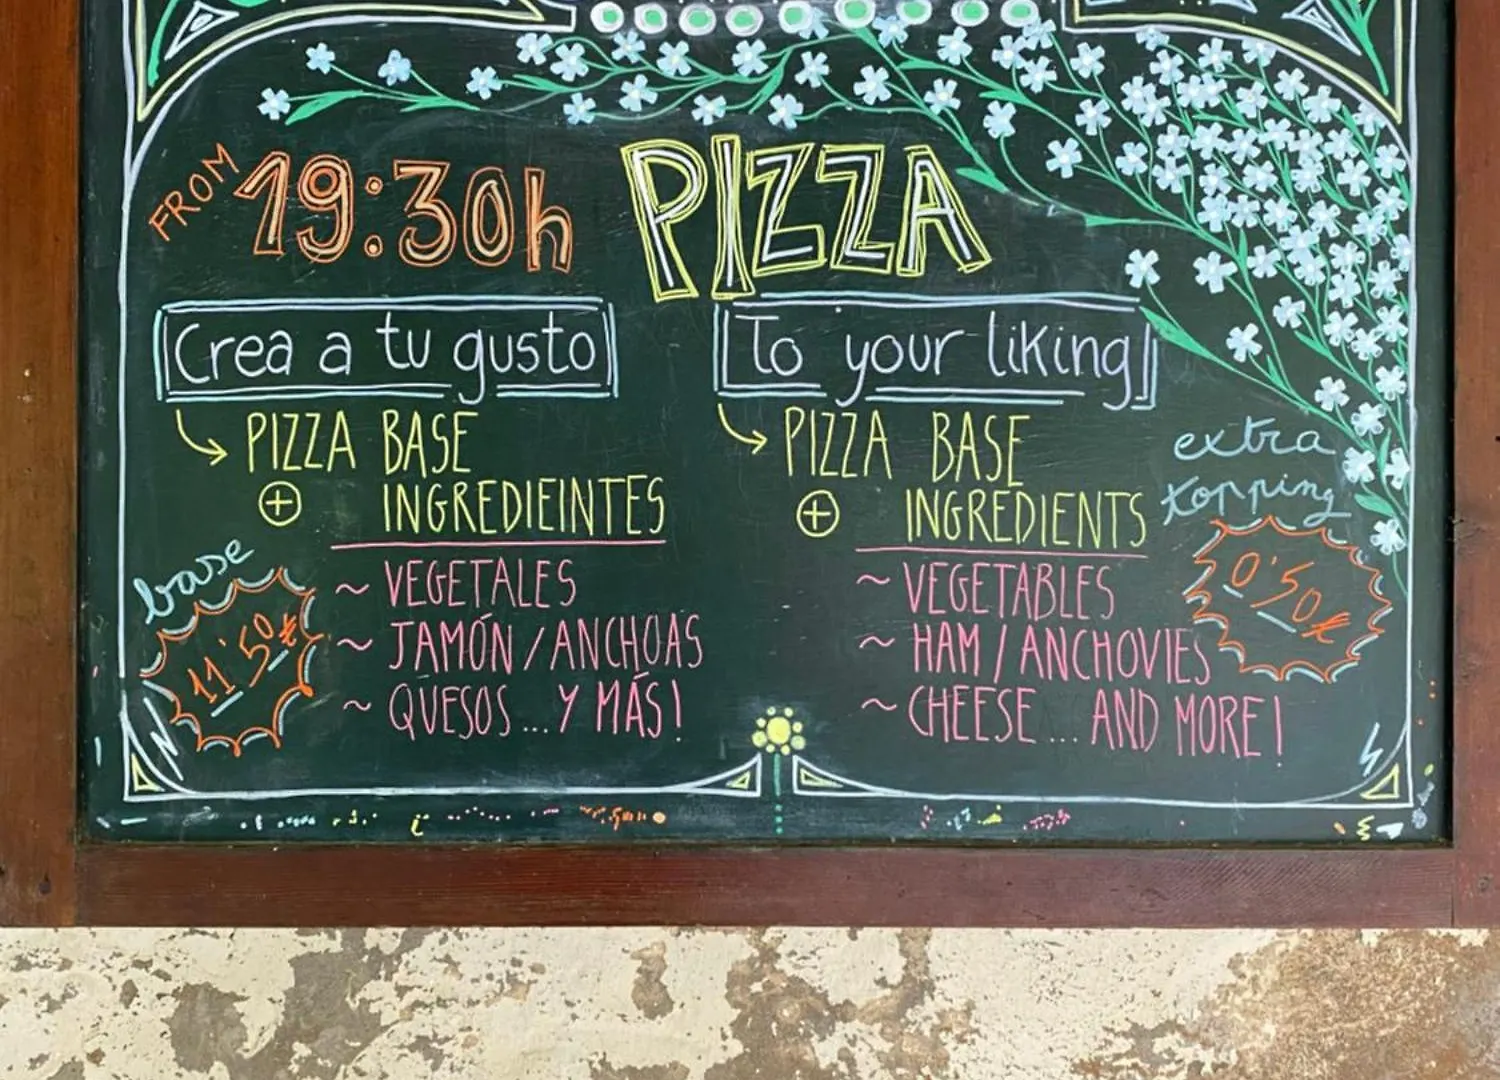 FROM 19:30h PIZZA
Crea a tu gusto
PIZZA BASE
+ INGREDIEINTES
base
11'50€
~ VEGETALES
~ JAMÓN / ANCHOAS
~ QUESOS ... Y MÁS!
To your liking
PIZZA BASE
+ INGREDIENTS
extra
topping
0'50€
~ VEGETABLES
~ HAM / ANCHOVIES
~ CHEESE ... AND MORE!